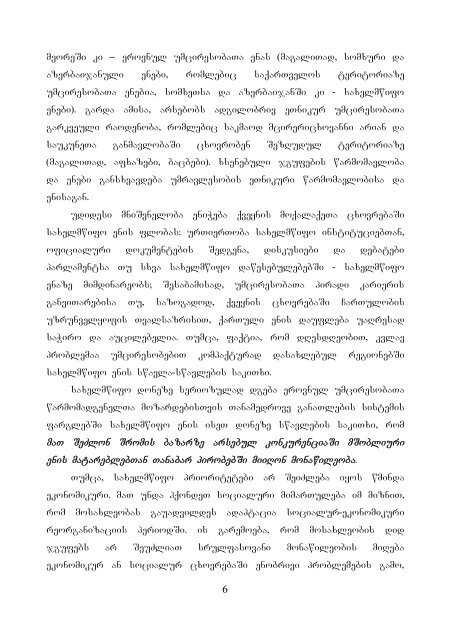 მეორეში კი – ეროვნულ უმცირესობათა ენას (მაგალითად, სომხური და
აზერბაიჯანული ენები, რომლებიც საქართველოს ტერიტორიაზე
უმცირესობათა ენებია, სომხეთსა და აზერბაიჯანში კი - სახელმწიფო
ენები). გარდა ამისა, არსებობს ადგილობრივ ეთნიკურ უმცირესობათა
გარკვეული რაოდენობა, რომლებიც საკმაოდ მცირერიცხოვანნი არიან და
საუკუნეთა განმავლობაში ცხოვრობენ შეზღუდულ ტერიტორიაზე
(მაგალითად, აფხაზები, ბაცბები). ხსენებული ჯგუფების წარმომავლობა
და ენები განსხვავდება უმრავლესობის ეთნიკური წარმომავლობისა და
ენისაგან.
უდიდესი მნიშვნელობა ენიჭება ქვეყნის მოქალაქეთა ცხოვრებაში
სახელმწიფო ენის ფლობას: ურთიერთობა სახელმწიფო ინსტიტუციებთან,
ოფიციალური დოკუმენტების შედგენა, დისკუსიები და დებატები
პარლამენტსა თუ სხვა სახელმწიფო დაწესებულებებში - სახელმწიფო
ენაზე მიმდინარეობს; შესაბამისად, უმცირესობათა პირადი კარიერის
განვითარებისა თუ, საზოგადოდ, ქვეყნის ცხოვრებაში ჩართულობის
უზრუნველყოფის თვალსაზრისით, ქართული ენის დაუფლება უაღრესად
საჭირო და აუცილებელია. თუმცა, ფაქტია, რომ დღესდღეობით, კვლავ
პრობლემაა უმცირესობებით კომპაქტურად დასახლებულ რეგიონებში
სახელმწიფო ენის სწავლა-სწავლების საკითხი.
სახელმწიფო დონეზე სერიოზულად დგება ეროვნულ უმცირესობათა
წარმომადგენელთა მოზარდებისთვის თანამედროვე განათლების სისტემის
ფარგლებში სახელმწიფო ენის ისეთ დონეზე სწავლების საკითხი, რომ
მათ შეძლონ შრომის ბაზარზე არსებულ კონკურენციაში მშობლიური
ენის მატარებლებთან თანაბარ პირობებში მიიღონ მონაწილეობა.
თუმცა, სახელმწიფო პრიორიტეტები არ შეიძლება იყოს წმინდა
ეკონომიკური. მათ უნდა ჰქონდეთ სოციალური მიმართულება იმ მიზნით,
რომ მოსახლეობას გაუადვილდეს ადაპტაცია სოციალურ-ეკონომიკური
რეორგანიზაციის პერიოდში. ის გარემოება, რომ მოსახლეობის დიდ
ჯგუფებს არ შეუძლიათ სრულფასოვანი მონაწილეობის მიღება
ეკონომიკურ ან სოციალურ ცხოვრებაში ენობრივი პრობლემების გამო,
6